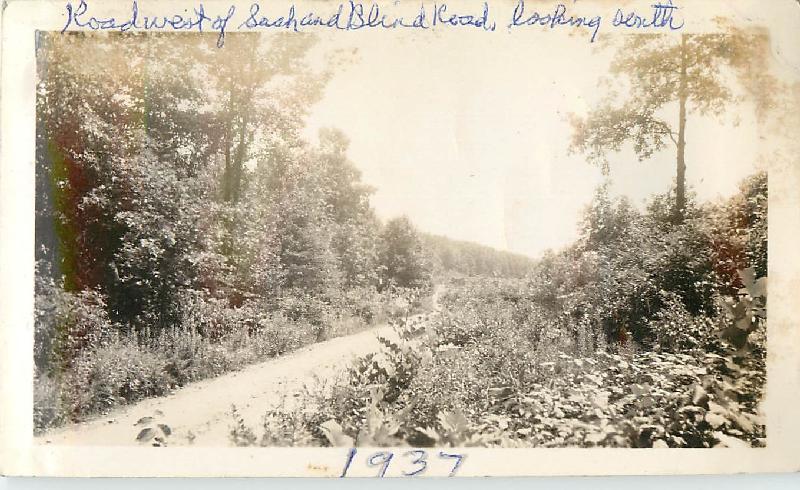 Road west of Sash and Blind Road, looking south
1937